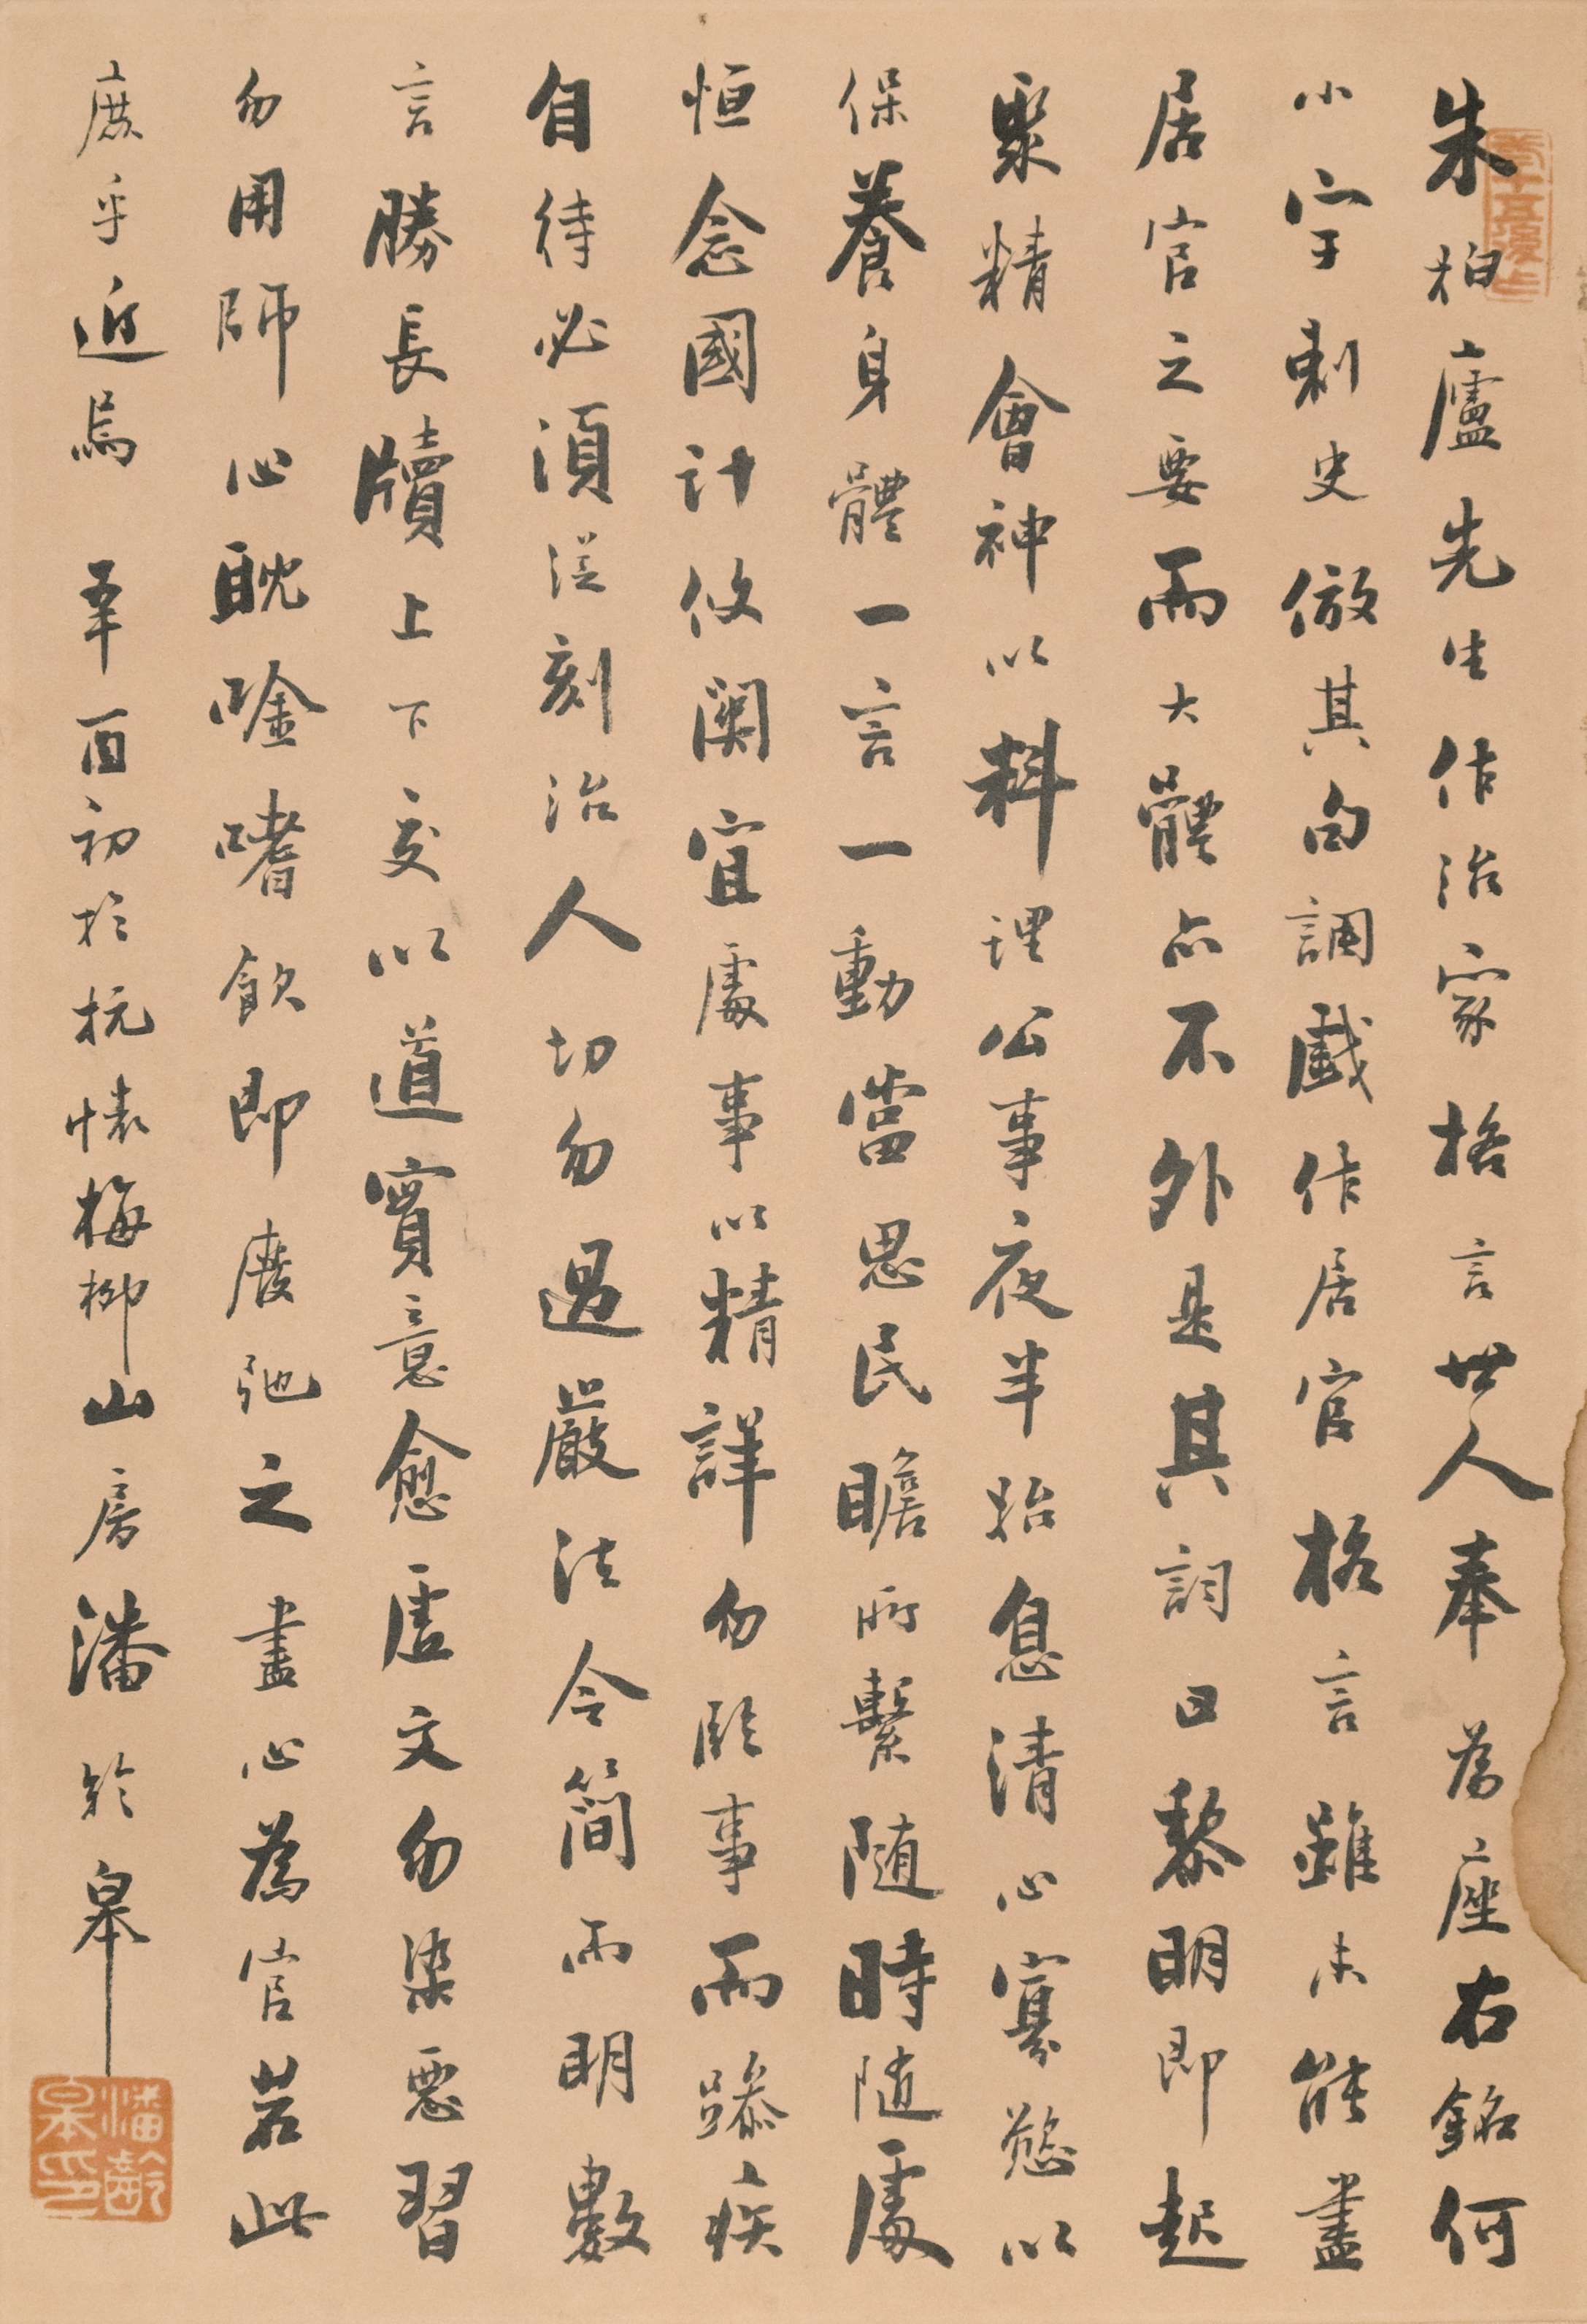 朱柏廬先生作治家格言世人奉為座右銘何
小宇刺史倣其句調戲作居官格言雖未能盡
居官之要而大體亦不外是其詞曰黎明即起
聚精會神以料理公事夜半始息清心寡慾以
保養身體一言一動當思民瞻所繫随時随處
恒念國計攸関宜處事以精詳勿臨事而躁疾
自待必須從刻治人切勿過嚴法令簡而明數
言勝長牘上下交以道實意愈虛文勿染惡習
勿用師心耽唫嗜飲即廢弛之盡心為官若此
庶乎近焉 辛酉初於杭懷梅柳山房潘齡皋
潘齡皋印